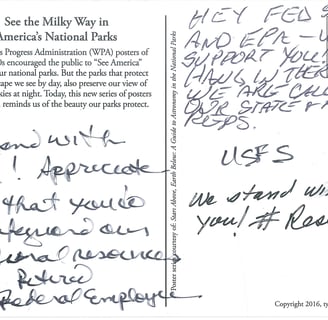 See the Milky Way in
America's National Parks
s Progress Administration (WPA) posters of
0s encouraged the public to "See America"
ur national parks. But the parks that protect
ape we see by day, also preserve our view of
kies at night. Today, this new series of posters
reminds us of the beauty our parks protect.
and with
! Appreciate
that you do
safeguard our
ional resources
Retired
Federal Employee
Poster series courtesy of: Stars Above, Earth Below: A Guide to Astronomy in the National Parks
HEY FED
AND EPA -
SUPPORT YOU!
HANG IN THERE
WE ARE CAL
OUR STATE &
REPS.
USFS
We stand wi
you! #Res
Copyright 2016, ty